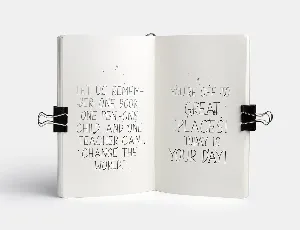 LET US REMEM-
BER: ONE BOOK,
ONE PEN, ONE
CHILD, AND ONE
TEACHER CAN
CHANGE THE
WORLD.
GREAT
PLACES!
TODAY IS
YOUR DAY!